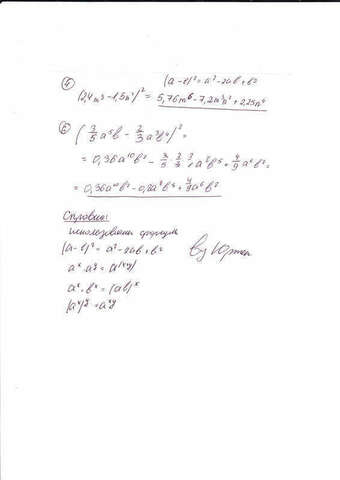 ④ (a-b)² = a² - 2ab + b²
(2,4m³ - 1,5n²)² = 5,76m⁶ - 7,2m³n² + 2,25n⁴
⑤ (3/5 a⁵b - 2/3 a³b⁴)² =
= 0,36a¹⁰b² - 3/5 · 2/3 · 2/1 a⁸b⁵ + 4/9 a⁶b⁸ =
= 0,36a¹⁰b² - 0,8a⁸b⁵ + 4/9 a⁶b⁸
Справка:
использованы формулы
(a-b)² = a² - 2ab + b²
aˣ · aʸ = a
aˣ · bˣ = (ab)ˣ
(aˣ)ʸ = aˣʸ
by